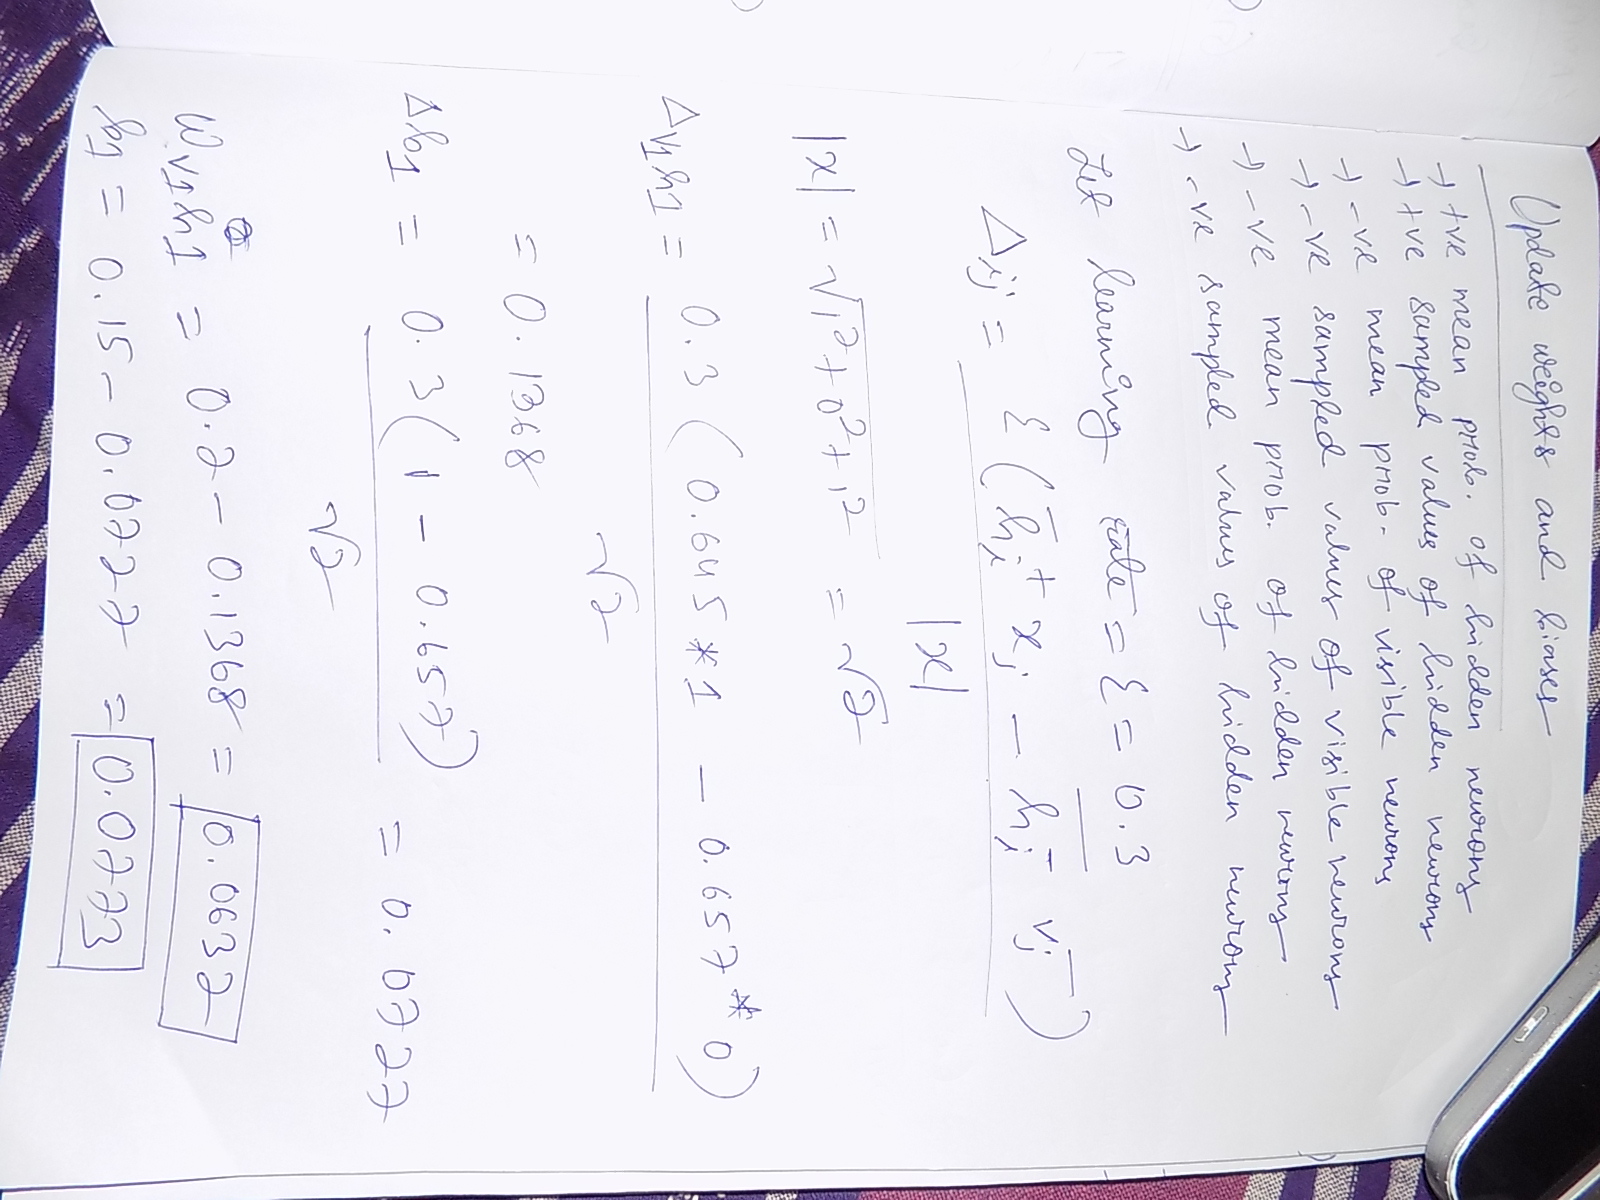 Update weights and biases
→ +ve mean prob. of hidden neurons
→ +ve sampled values of hidden neurons
→ -ve mean prob. of visible neurons
→ -ve sampled values of visible neurons
→ -ve mean prob. of hidden neurons
→ -ve sampled values of hidden neurons
Let learning rate = ξ = 0.3
Δij = ξ (h̄i⁺ xj - hi⁻ vj⁻)
|x|
|x| = √1²+0²+1² = √2
Δv1h1 = 0.3 (0.645*1 - 0.657*0)
√2
= 0.1368
Δb1 = 0.3 (1 - 0.657) = 0.0727
√2
Wv1h1 = 0.2 - 0.1368 = 0.0632
b1 = 0.15 - 0.0727 = 0.0773